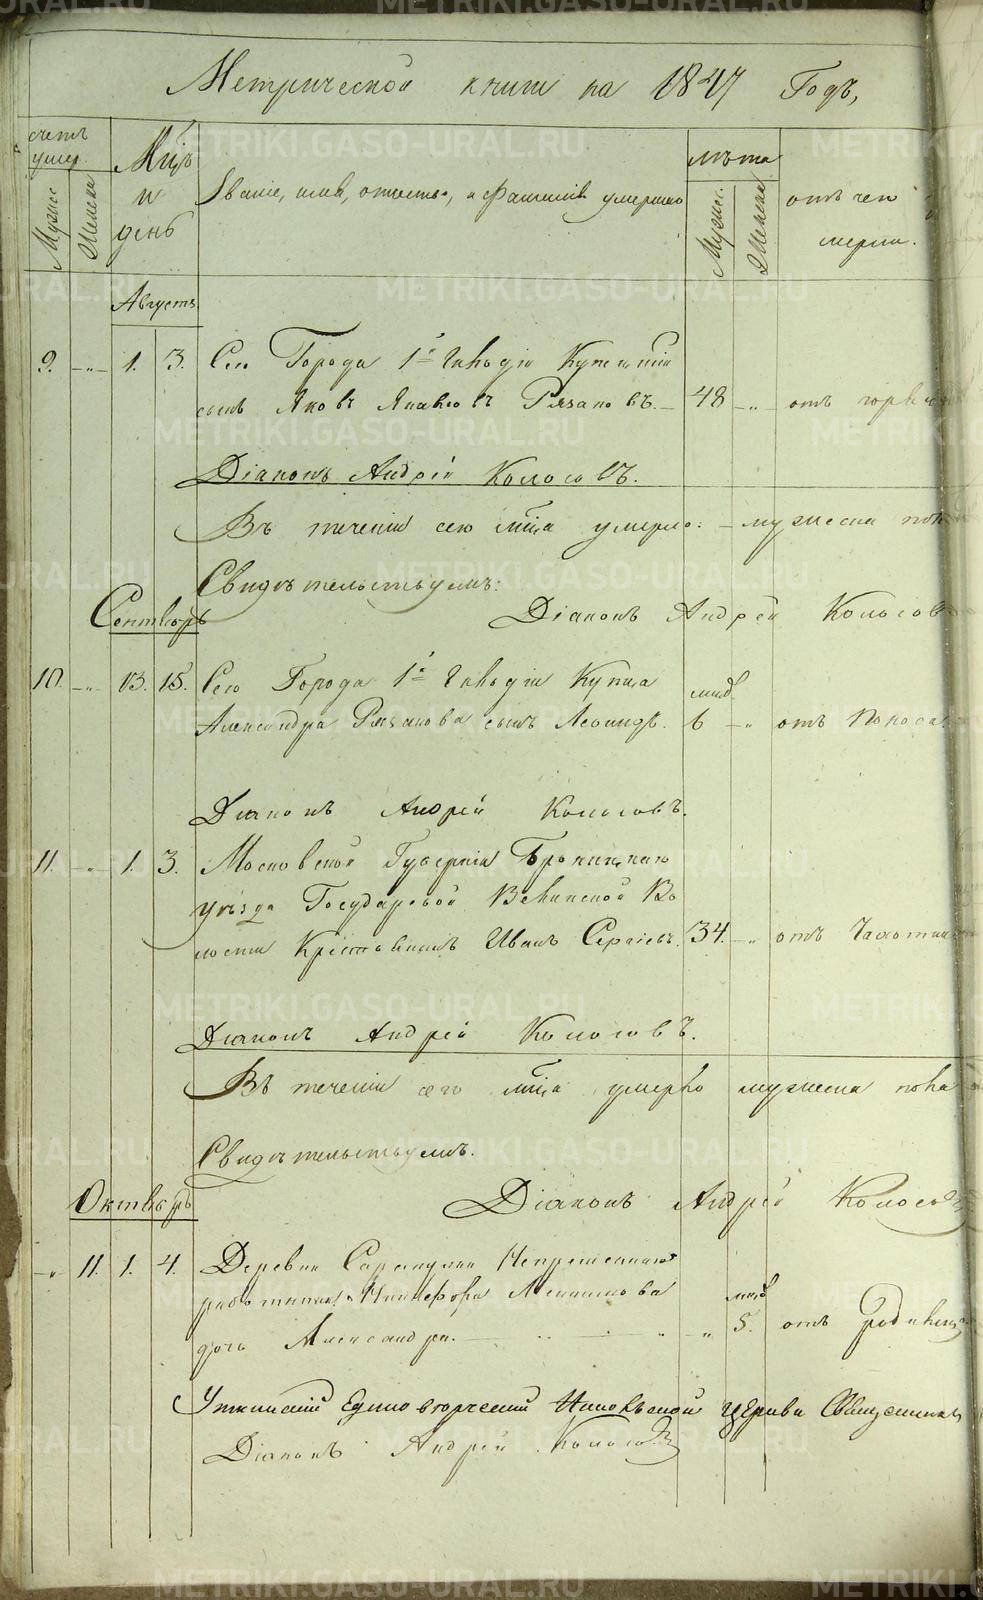 Метрической книги на 1847 Годъ,
счетъ умер.
Мужес
Женска
Мцъ и день
Званіе, имя, отчество, и фамилія умерших
лѣта
Мужес.
Женска
отъ чего
смерти.
Августъ
9. -„- 1. 3. Сего Города 1й Гильдіи Купецкій
сынъ Яковъ Яковлевъ Рязановъ. 48 -„- отъ горяч
Діаконъ Андрей Колосовъ.
Въ теченіи сего мца умерло: - мужеска пола
Свидѣтельствуемъ:
Сентябрь
Діаконъ Андрей Колосовъ
10. -„- 13. 15. Сего Города 1й Гильдіи Купца
Александра Рязанова сынъ Леонидъ. мцв. 6 -„- отъ поноса.
Діаконъ Андрей Колосовъ.
11. -„- 1. 3. Московской Губерніи Бронницкаго
уѣзда Государевой Велинской Во
лости Крестьянинъ Иванъ Сергіевъ. 34. -„- отъ Чахотки
Діаконъ Андрей Колосовъ.
Въ теченіи сего мца умерло мужеска пола
Свидѣтельствуемъ.
Октябрь
Діаконъ Андрей Колосовъ
-„- 11. 1. 4. Деревни Сарапулки Непременнаго
работника Никифора
дочь Александра. - „ мцв 5. отъ Родимца
Уткинскій Единоверческій Никольской церкви Священникъ
Діаконъ Андрей Колосовъ
METRIKI.GASO-URAL.RU